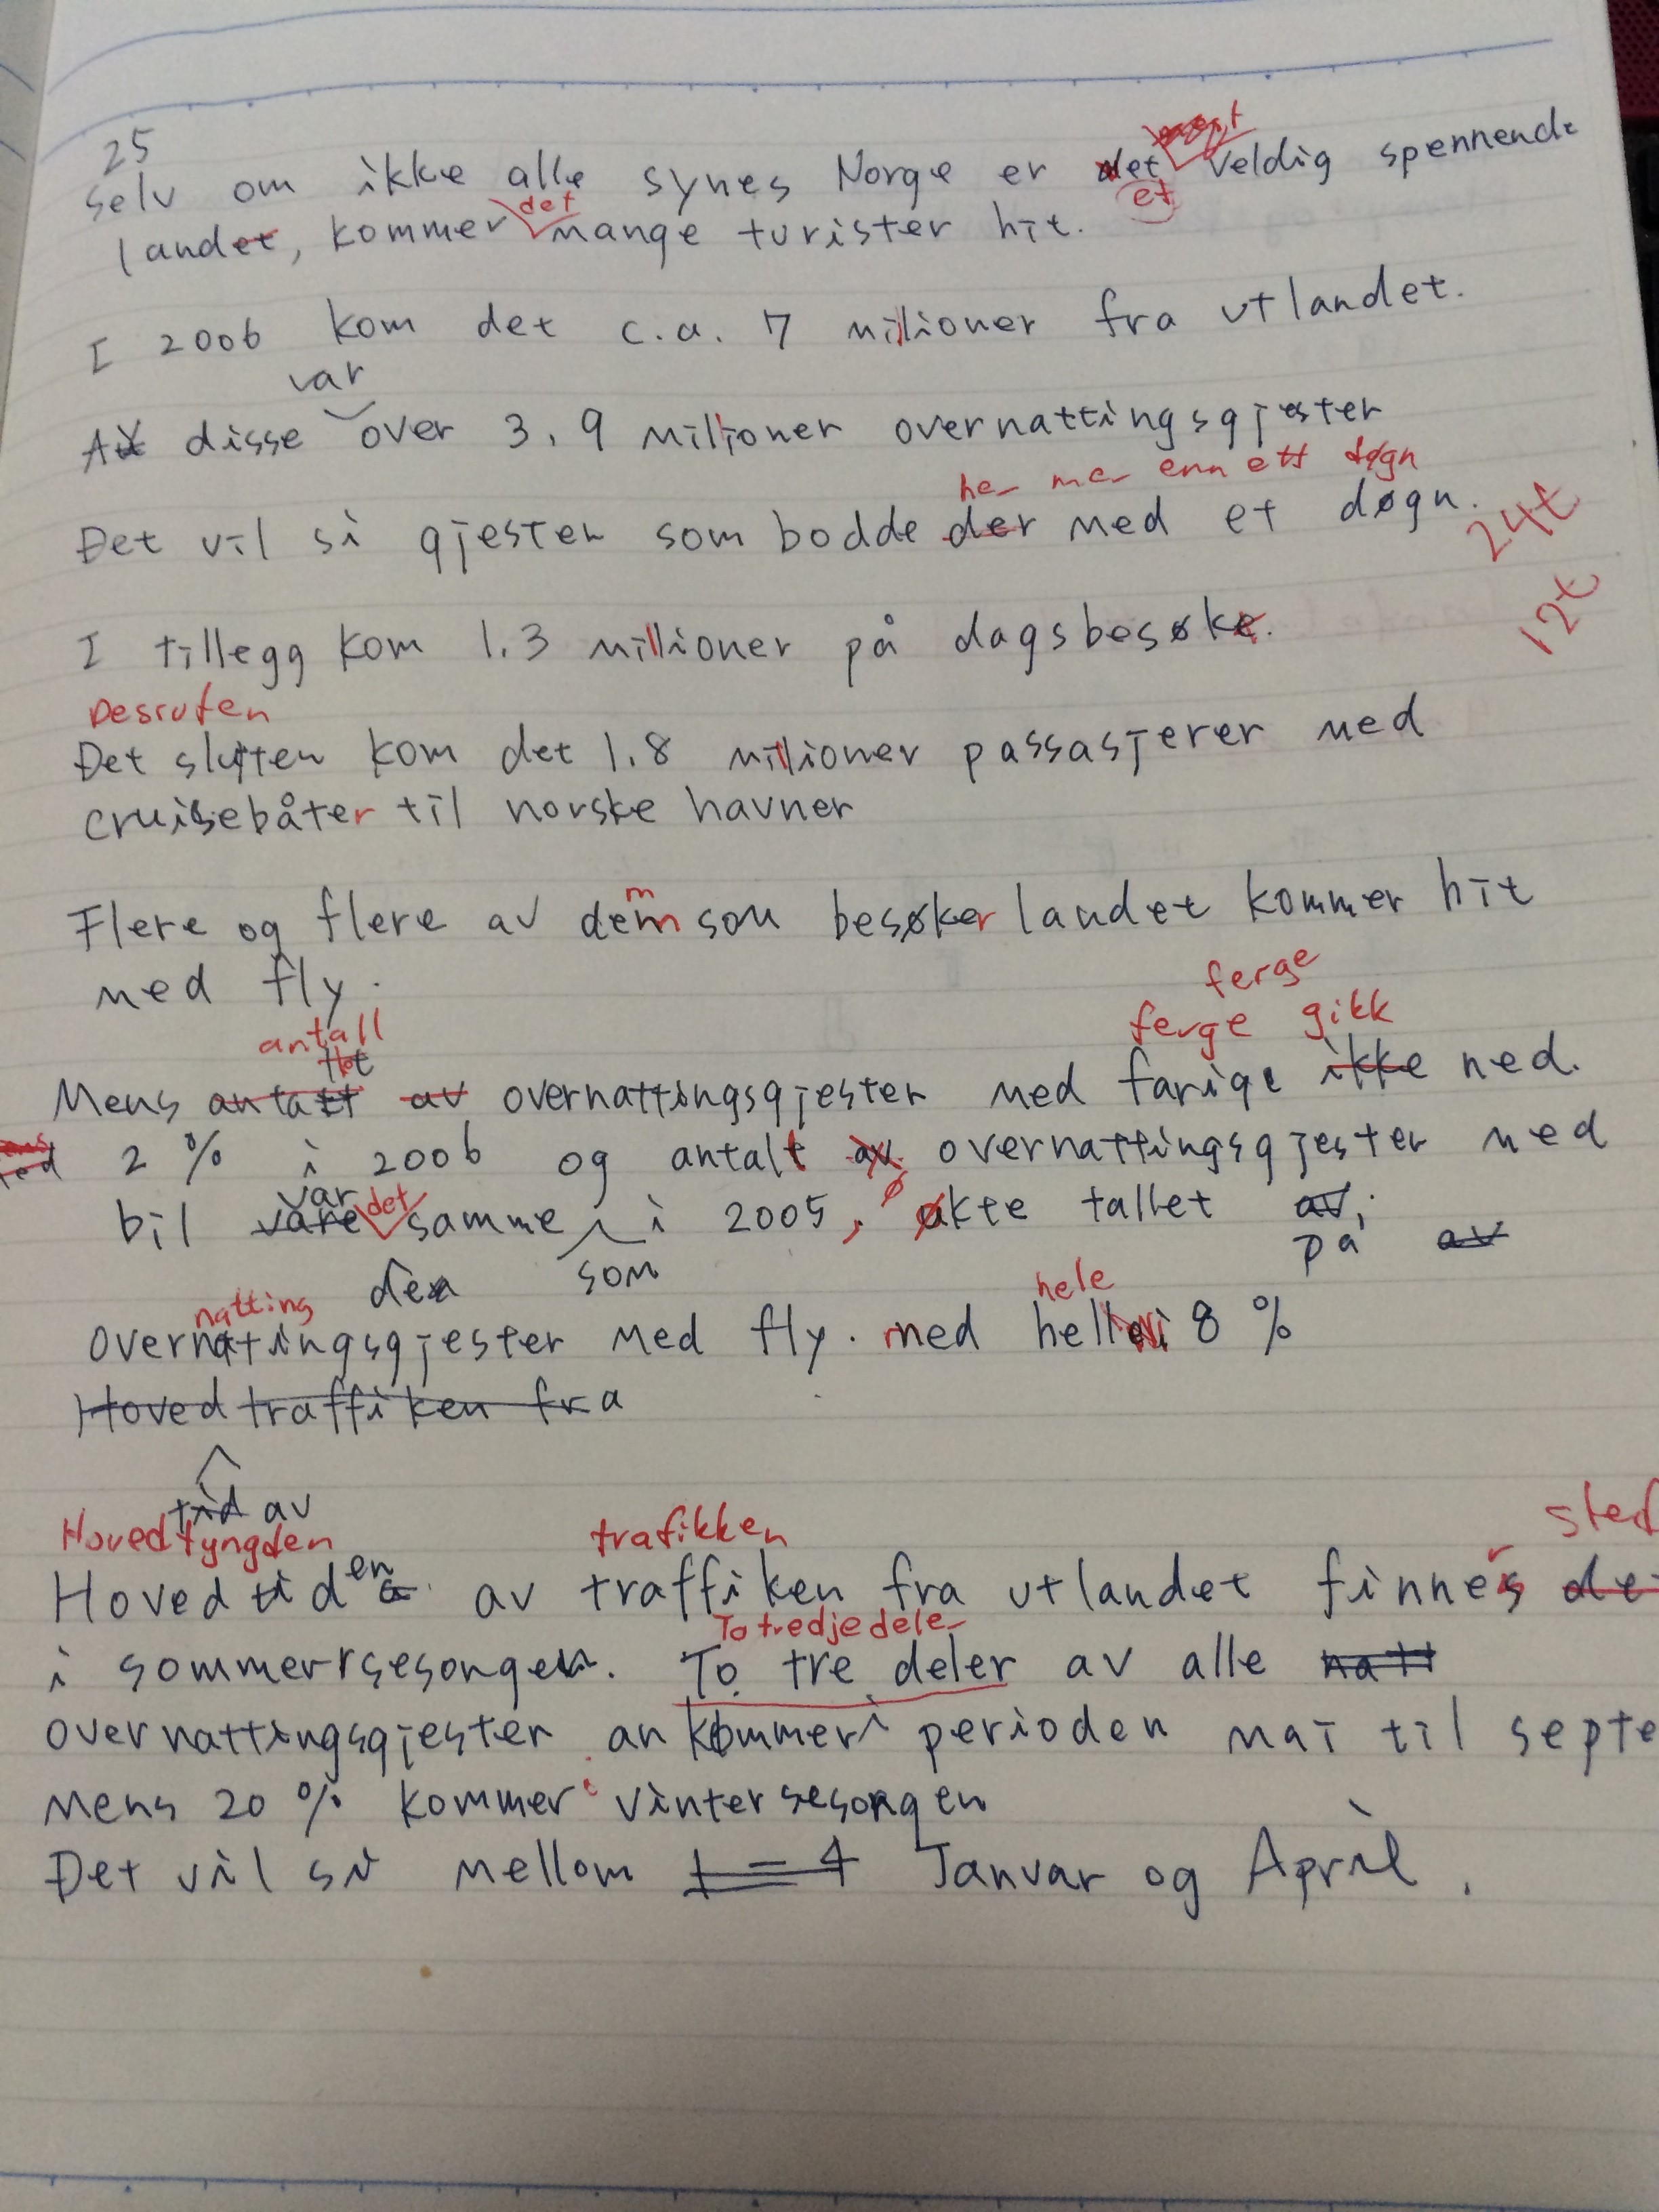 25
selv om ikke alle synes Norge er det veldig spennende
et
det
landet, kommer mange turister hit.
I 2006 kom det c.a. 7 millioner fra utlandet.
var
Av disse over 3,9 millioner overnattingsgjester
her mer enn ett døgn
Det vil si gjester som bodde der med et døgn.
24t
12t
I tillegg kom 1.3 millioner på dagsbesøke.
Desruten
Det slutten kom det 1.8 millioner passasjerer med
cruisebåter til norske havner
m
Flere og flere av dem som besøker landet kommer hit
med fly.
ferge
antall ferge gikk
Mens antatt av overnattingsgjester med farige ikke ned.
2 % i 2006 og antalt av overnattingsgjester med
var det
bil våre samme i 2005, økte tallet av;
på av
den som
natting hele
overnattingsgjester med fly. med helle 8 %
Hovedtraffiken fra
tid av
Hovedtyngden trafikken sted
Hovedtiden av traffiken fra utlandet finnes de
To tredjedeler
i sommerrsesongen. To tre deler av alle natt
overnattingsgjester ankommer i perioden mai til septe
mens 20 % kommer i vintersesongen
Det vil si mellom 1 = 4 Januar og April.